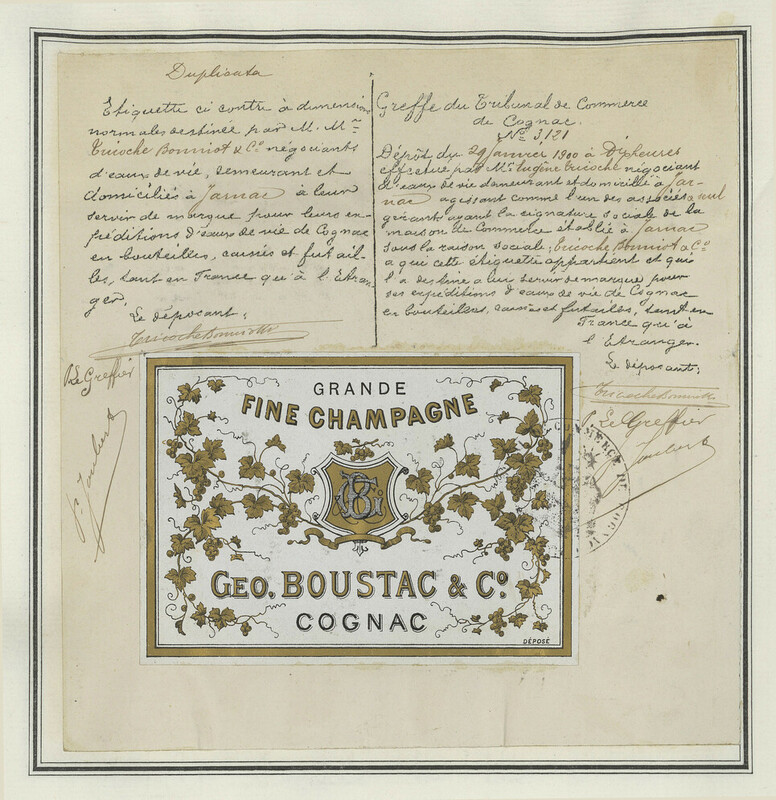 Duplicata
Etiquette ci contre à dimensions
normales destinée par M. Mrs
Tricoche Bonniot & Co négociants
d'eaux de vie, demeurant et
domiciliés à Jarnac à leur
servir de marque pour leurs ex-
péditions d'eaux de vie de Cognac
en bouteilles, caisses et futail-
les, tant en France qu'à l'Etran-
ger.
Le déposant:
Tricoche Bonniot & Co
Le Greffier
P. Joubert
Greffe du Tribunal de Commerce
de Cognac.
No 3,121
Dépôt du 29 Janvier 1900 à Dix heures
effectué par Mr Eugène Tricoche négociant
d'eaux de vie demeurant et domicilié à Jar-
nac agissant comme l'un des associés seul
gérants ayant la signature sociale de la
maison de Commerce établie à Jarnac
sous la raison sociale: Tricoche Bonniot & Co
a qui cette étiquette appartient et qui
l'a destine a lui servir de marque pour
ses expéditions d'eaux de vie de Cognac
en bouteilles, caisses et futailles, tant en
France qu'à
l'Etranger.
Le déposant:
Tricoche Bonniot & Co
Le Greffier
Joubert
COMMERCE DE COGNAC
GRANDE
FINE CHAMPAGNE
GEO. BOUSTAC & Co.
COGNAC
DÉPOSÉ